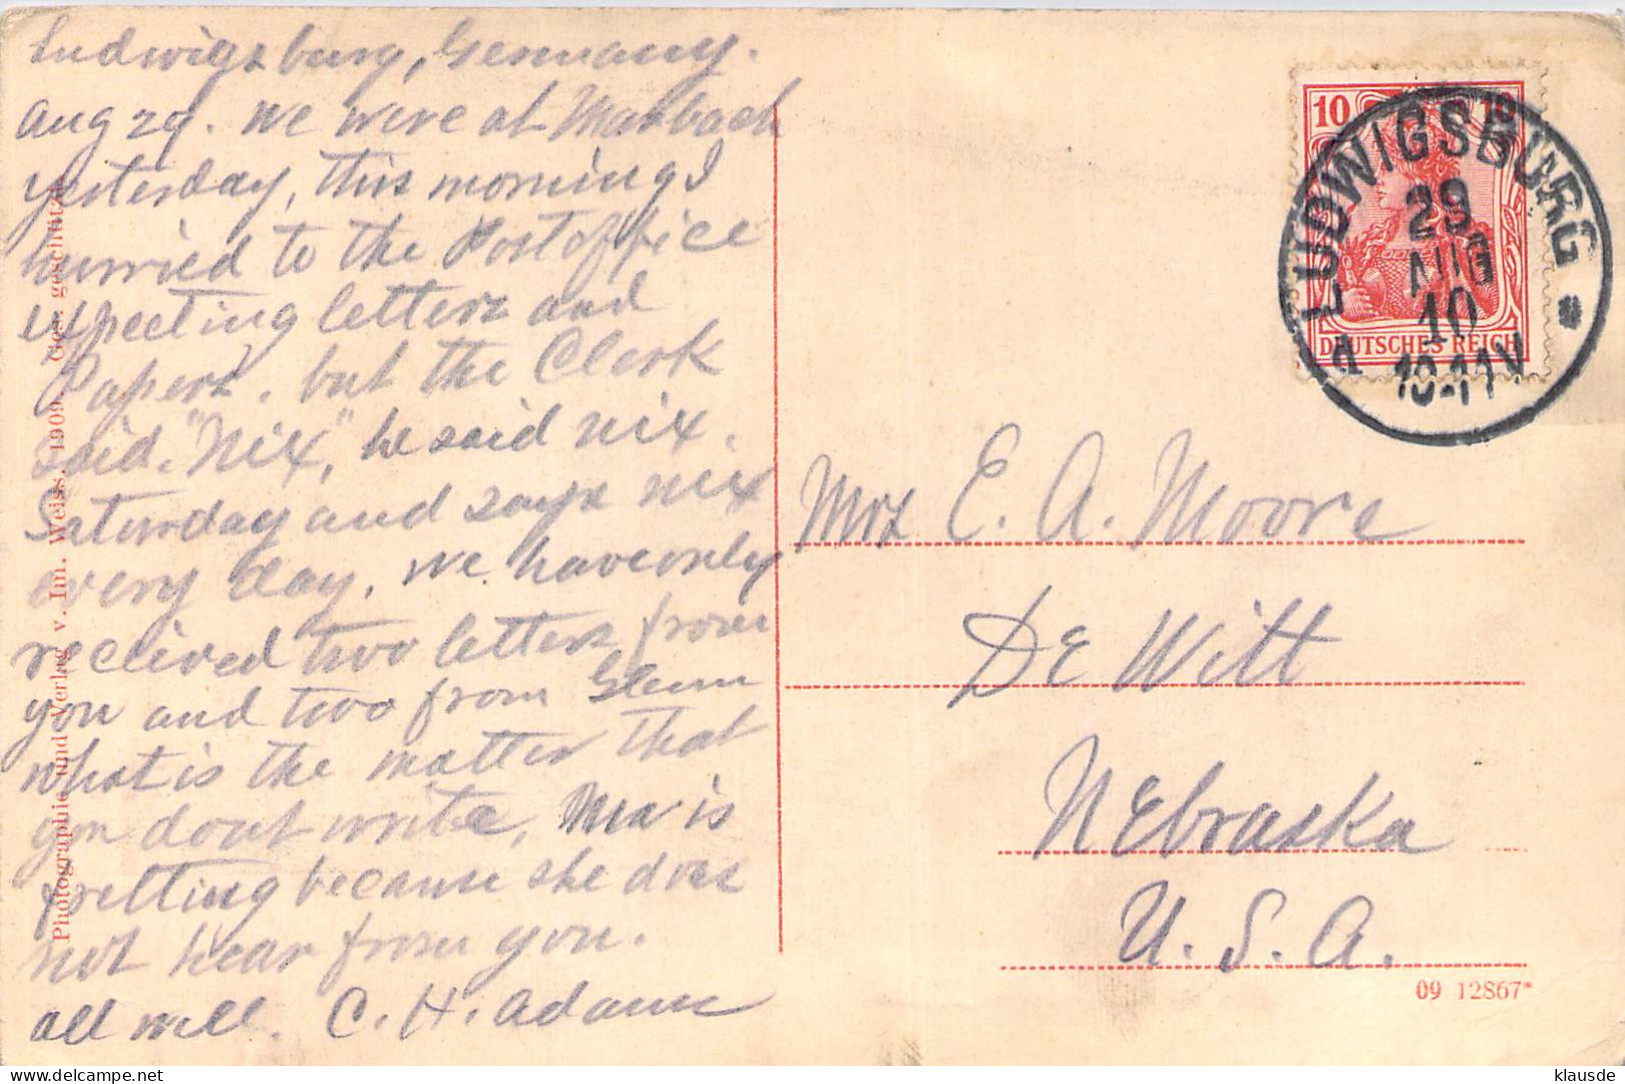 Ludwigsburg, Germany.
Aug 29. We were at Marbach
yesterday, this morning I
hurried to the Postoffice
expecting letters and
Papers. but the Clerk
said. "Nix", he said nix.
Saturday and says nix
every day. We have only
received two letters from
you and two from Glenn
what is the matter that
you dont write, Ma is
fretting because she does
not hear from you.
all well. C. H. Adams
Photographie und Verlag v. Im. Weiss. 1909. Ges. geschützt.
10 10
DEUTSCHES REICH
LUDWIGSBURG
29
AUG
10
10-11V
Mrs E. A. Moore
De Witt
Nebraska
U. S. A.
09 12867*
klausde